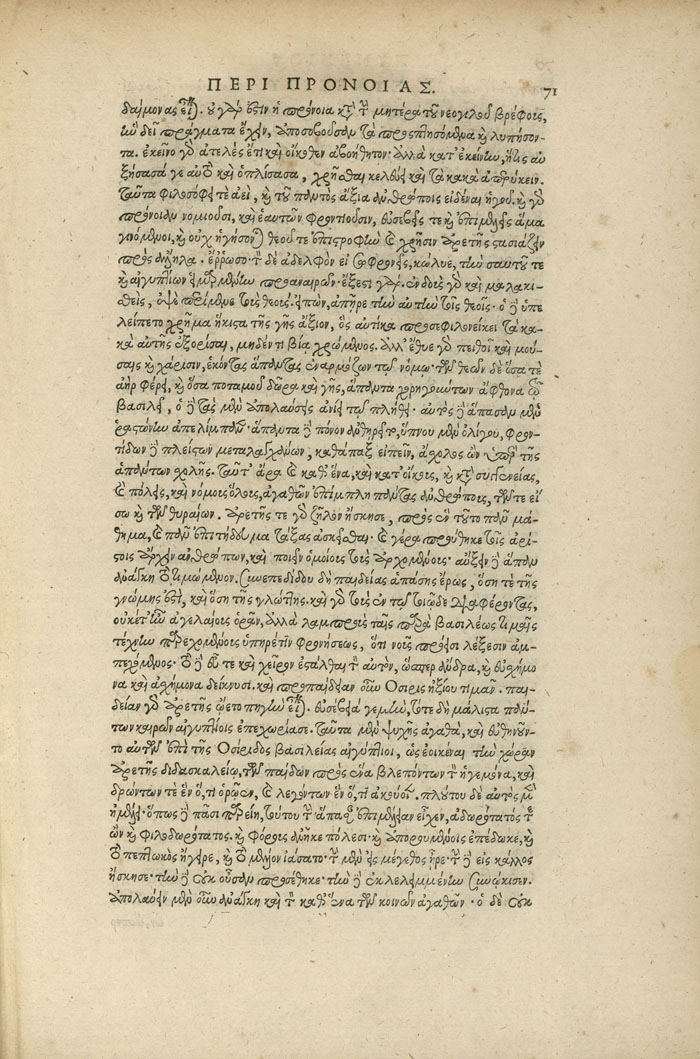 ΠΕΡΙ ΠΡΟΝΟΙΑΣ. 71
δαίμονας εἶ). οὐ γάρ ὅςιν ἡ πρόνοια κτ̀ τ̀ μητέρα τοῦ νεογιλοῦ βρέφοις,
ἣν δεῖ πράγματα ἔχειν, ἀποσοβοῦσαν τὰ προσπτησόμενα καὶ λυπήσον-
τα. ἐκεῖνο γὸ ἀτελὲς ἔτι καὶ οἴκοθεν ἀβοήθητον. ἀλλὰ κατ' ἐκείνην, ἥτις αὐ
ξήσασά γε αὐτὸ καὶ ὁπλίσασα, χρῆσθαι κελεύει καὶ τὰ κακὰ ἀπερύκειν.
ταῦτα φιλοσόφει τε ἀεὶ, καὶ τοῦ παντὸς ἄξια ἀνθρώποις εἰδέναι ἡγοῦ. καὶ γὸ
πρόνοιαν νομιοῦσι, καὶ ἑαυτῶν φροντιοῦσιν, εὐσεβεῖς τε καὶ ἐπιμελεῖς ἅμα
γινόμενοι, καὶ οὐχ ἡγήσον) θεοῦ τε ἐπιστροφὴν καὶ χρῆσιν ἀρετῆς στασιάζειν
πρὸς ἄλληλα. ἔῤῥωσο· τ̀ δὲ ἀδελφὸν εἰ σωφρονεῖς, κώλυε, τὴν σαυτοῦ τε
καὶ αἰγυπτίων εἱμαρμένην προαναιρῶν· ἔξεστι γάρ. ἐνδοὺς γὸ καὶ μαλακι-
θεὶς, ὀψὲ περίμενε τοὺς θεούς. εἰπὼν, ἀπῄρε τὴν αὐτὴν τοῖς θεοῖς· ὁ δὲ ὑπε
λείπετο χρῆμα ἥκιςα τῆς γῆς ἄξιον, ὃς αὐτίκα προσεφιλονείκει τὰ κα-
κὰ αὐτῆς ἐξορίσαι, μηδέν τι βίᾳ χρώμενος. ἀλλ' ἔθυε γὸ πειθοῖ καὶ μού-
σαις καὶ χάρισιν, ἑκόντας ἅπαντας ἐναρμόζων τῷ νόμῳ· τῶν θεῶν δὲ ὅσα τε
ἀὴρ φέρει, καὶ ὅσα ποταμοῦ δῶρα καὶ γῆς, ἅπαντα χορηγούντων ἄφθονα τῷ
βασιλεῖ, ὁ δὲ τὰς μὲν ἀπολαύσεις ἀνίει τῷ πλήθει· αὐτὸς δὲ ἅπασαν μὲν
ῥαστώνην ἀπελίμπαν · ἅπαντα δὲ πόνον ἀνθῃρεῖτο, ὕπνου μὲν ὀλίγου, φρον-
τίδων δὲ πλείςων μεταλαγχάνων, καθάπαξ εἰπεῖν, ἄσχολος ὢν ὑπὲρ τῆς
ἁπάντων σχολῆς. ταῦτ' ἄρα καὶ καθ' ἕνα, καὶ κατ' οἴκοις, καὶ κτ̀ συγγενείας,
καὶ πόλεις, καὶ νόμοις ὅλοις, ἀγαθῶν ἐπίμπλη πάντας ἀνθρώποις, τῶν τε εἴ
σω καὶ τῶν θυραίων. ἀρετῆς τε γὸ ζῆλον ἤσκησε, πρὸς ἓν τοῦτο πᾶν μά-
θημα, καὶ πᾶν ἐπιτήδευμα τάξας ἀσκεῖσθαι· καὶ γέρα προὔθηκε τοῖς ἀρί-
σοις ἄρχειν ἀνθρώπων, καὶ ποιεῖν ὁμοίοις τοὺς ἀρχομένοις· αὔξειν δὲ ἅπαν
ἀνάγκη τὸ τιμώμενον. συνεπεδίδου δὴ παιδείας ἁπάσης ἔρως, ὅση τε τῆς
γνώμης ἐστὶ, καὶ ὅση τῆς γλώττης. καὶ γὸ τοὺς ἐν τῷ τοιῷδε διαφέροντας,
οὐκέτ' ἦν ἀγελαίοις ὁρᾶν, ἀλλὰ λαμπροὺς ταῖς παρὰ βασιλέως τιμαῖς
τέχνην παρεχομένοις ὑπηρέτιν φρονήσεως, ὅτι νοῦς πρόεισι λέξεσιν ἀμ-
πεχόμενος· τὸ δὲ εὖ τε καὶ χεῖρον ἐστάλθαι τ̀ αὐτὸν, ὥσπερ ἄνδρα, καὶ εὐσχήμο
να καὶ ἀσχήμονα δείκνυσι. καὶ προπαιδείαν οὖν Ὄσιρις ἠξίου τιμᾶν. παι-
δείαν γὸ ἀρετῆς ᾤετο πηγὴν εἶ). εὐσέβειά γε μὴν, τότε δὴ μάλιςα πάν-
των καιρῶν αἰγυπτίοις ἐπεχωρίασε. ταῦτα μὲν ψυχῆς ἀγαθὰ, καὶ εὐθηνοῦν-
το αὐτῶν ἐπὶ τῆς Ὀσίριδος βασιλείας αἰγύπτιοι, ὡς ἐοικέναι τὴν χώραν
ἀρετῆς διδασκαλείῳ, τῶν παίδων πρὸς ἕνα βλεπόντων τ̀ ἡγεμόνα, καὶ
δρώντων τὲ ἓν ὅ, τι ὁρῷεν, καὶ λεγόντων ἓν ὅ, τι ἀκούοιεν. πλούτου δὲ αὐτὸς μὲν
ἠμέλει· ὅπως δὲ πᾶσι παρείη, τούτου τ̀ ἅπασαν ἐπιμέλειαν εἶχεν, ἀδωρότατός τε
ὢν καὶ φιλοδωρότατος. καὶ φόρους ἀνῆκε πόλεσι· καὶ ἀπορουμένοις ἐπέδωκε, καὶ
τὸ πεπτωκὸς ἤγειρε, καὶ τὸ μέλλον ἰάσατο· τ̀ μὲν εἰς μέγεθος ᾖρε· τ̀ δὲ εἰς κάλλος
ἤσκησε· τὴν δὲ οὐκ οὖσαν προσέθηκε· τὴν δὲ ἐκλελειμμένην συνῴκισεν.
ἀπολαύειν μὲν οὖν ἀνάγκη καὶ τ̀ καθ' ἕνα τῶν κοινῶν ἀγαθῶν· ὁ δὲ οὐκ